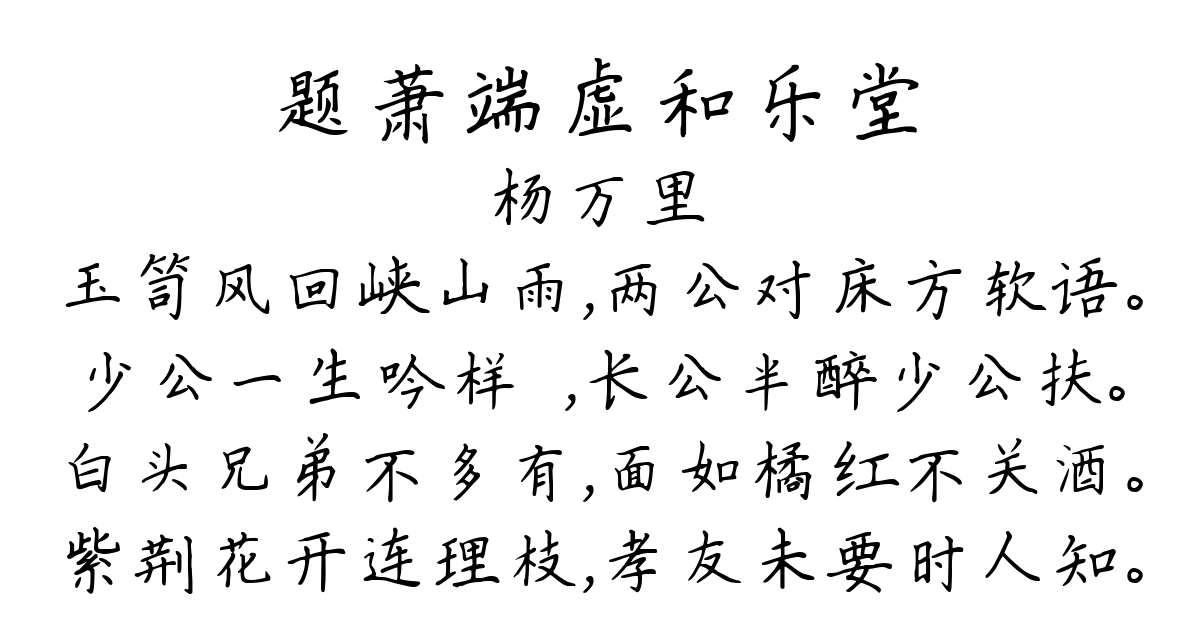 题萧端虚和乐堂
杨万里
玉笥风回峡山雨,两公对床方软语。
少公一生吟样 ,长公半醉少公扶。
白头兄弟不多有,面如橘红不关酒。
紫荆花开连理枝,孝友未要时人知。